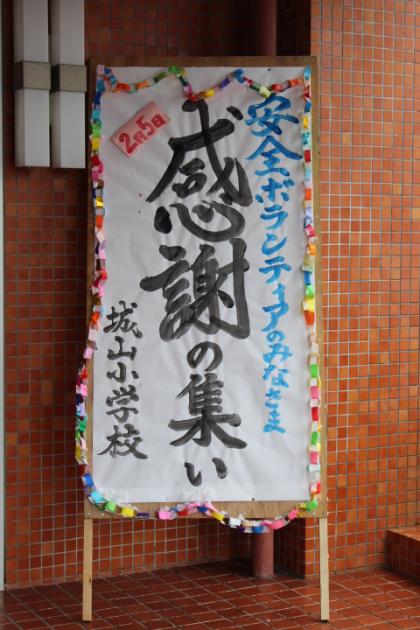 安全ボランティアのみなさま
2月5日
感謝の集い
城山小学校